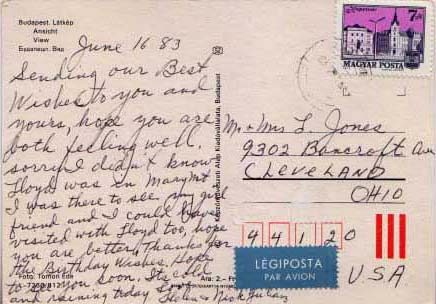 Budapest. Látkép
Ansicht
View
June 16 83
Sending our Best
Wishes to you and
yours, hope you are
both feeling well.
sorry I didn't know
Floyd was in
I was there to see my girl
friend and I could have
visited with Floyd too, hope
you are better, Thanks for
the Birthday Wishes. Hope
to see you soon. Its cold
and raining today
Foto: Tomori Ede
Képzőművészeti Alap Kiadóvállalata, Budapest
7Ft
MAGYAR POSTA
Mr + Mrs L. Jones
9302 Bancroft Ave
CLEVELAND
OHIO
44120
LÉGIPOSTA
PAR AVION
USA